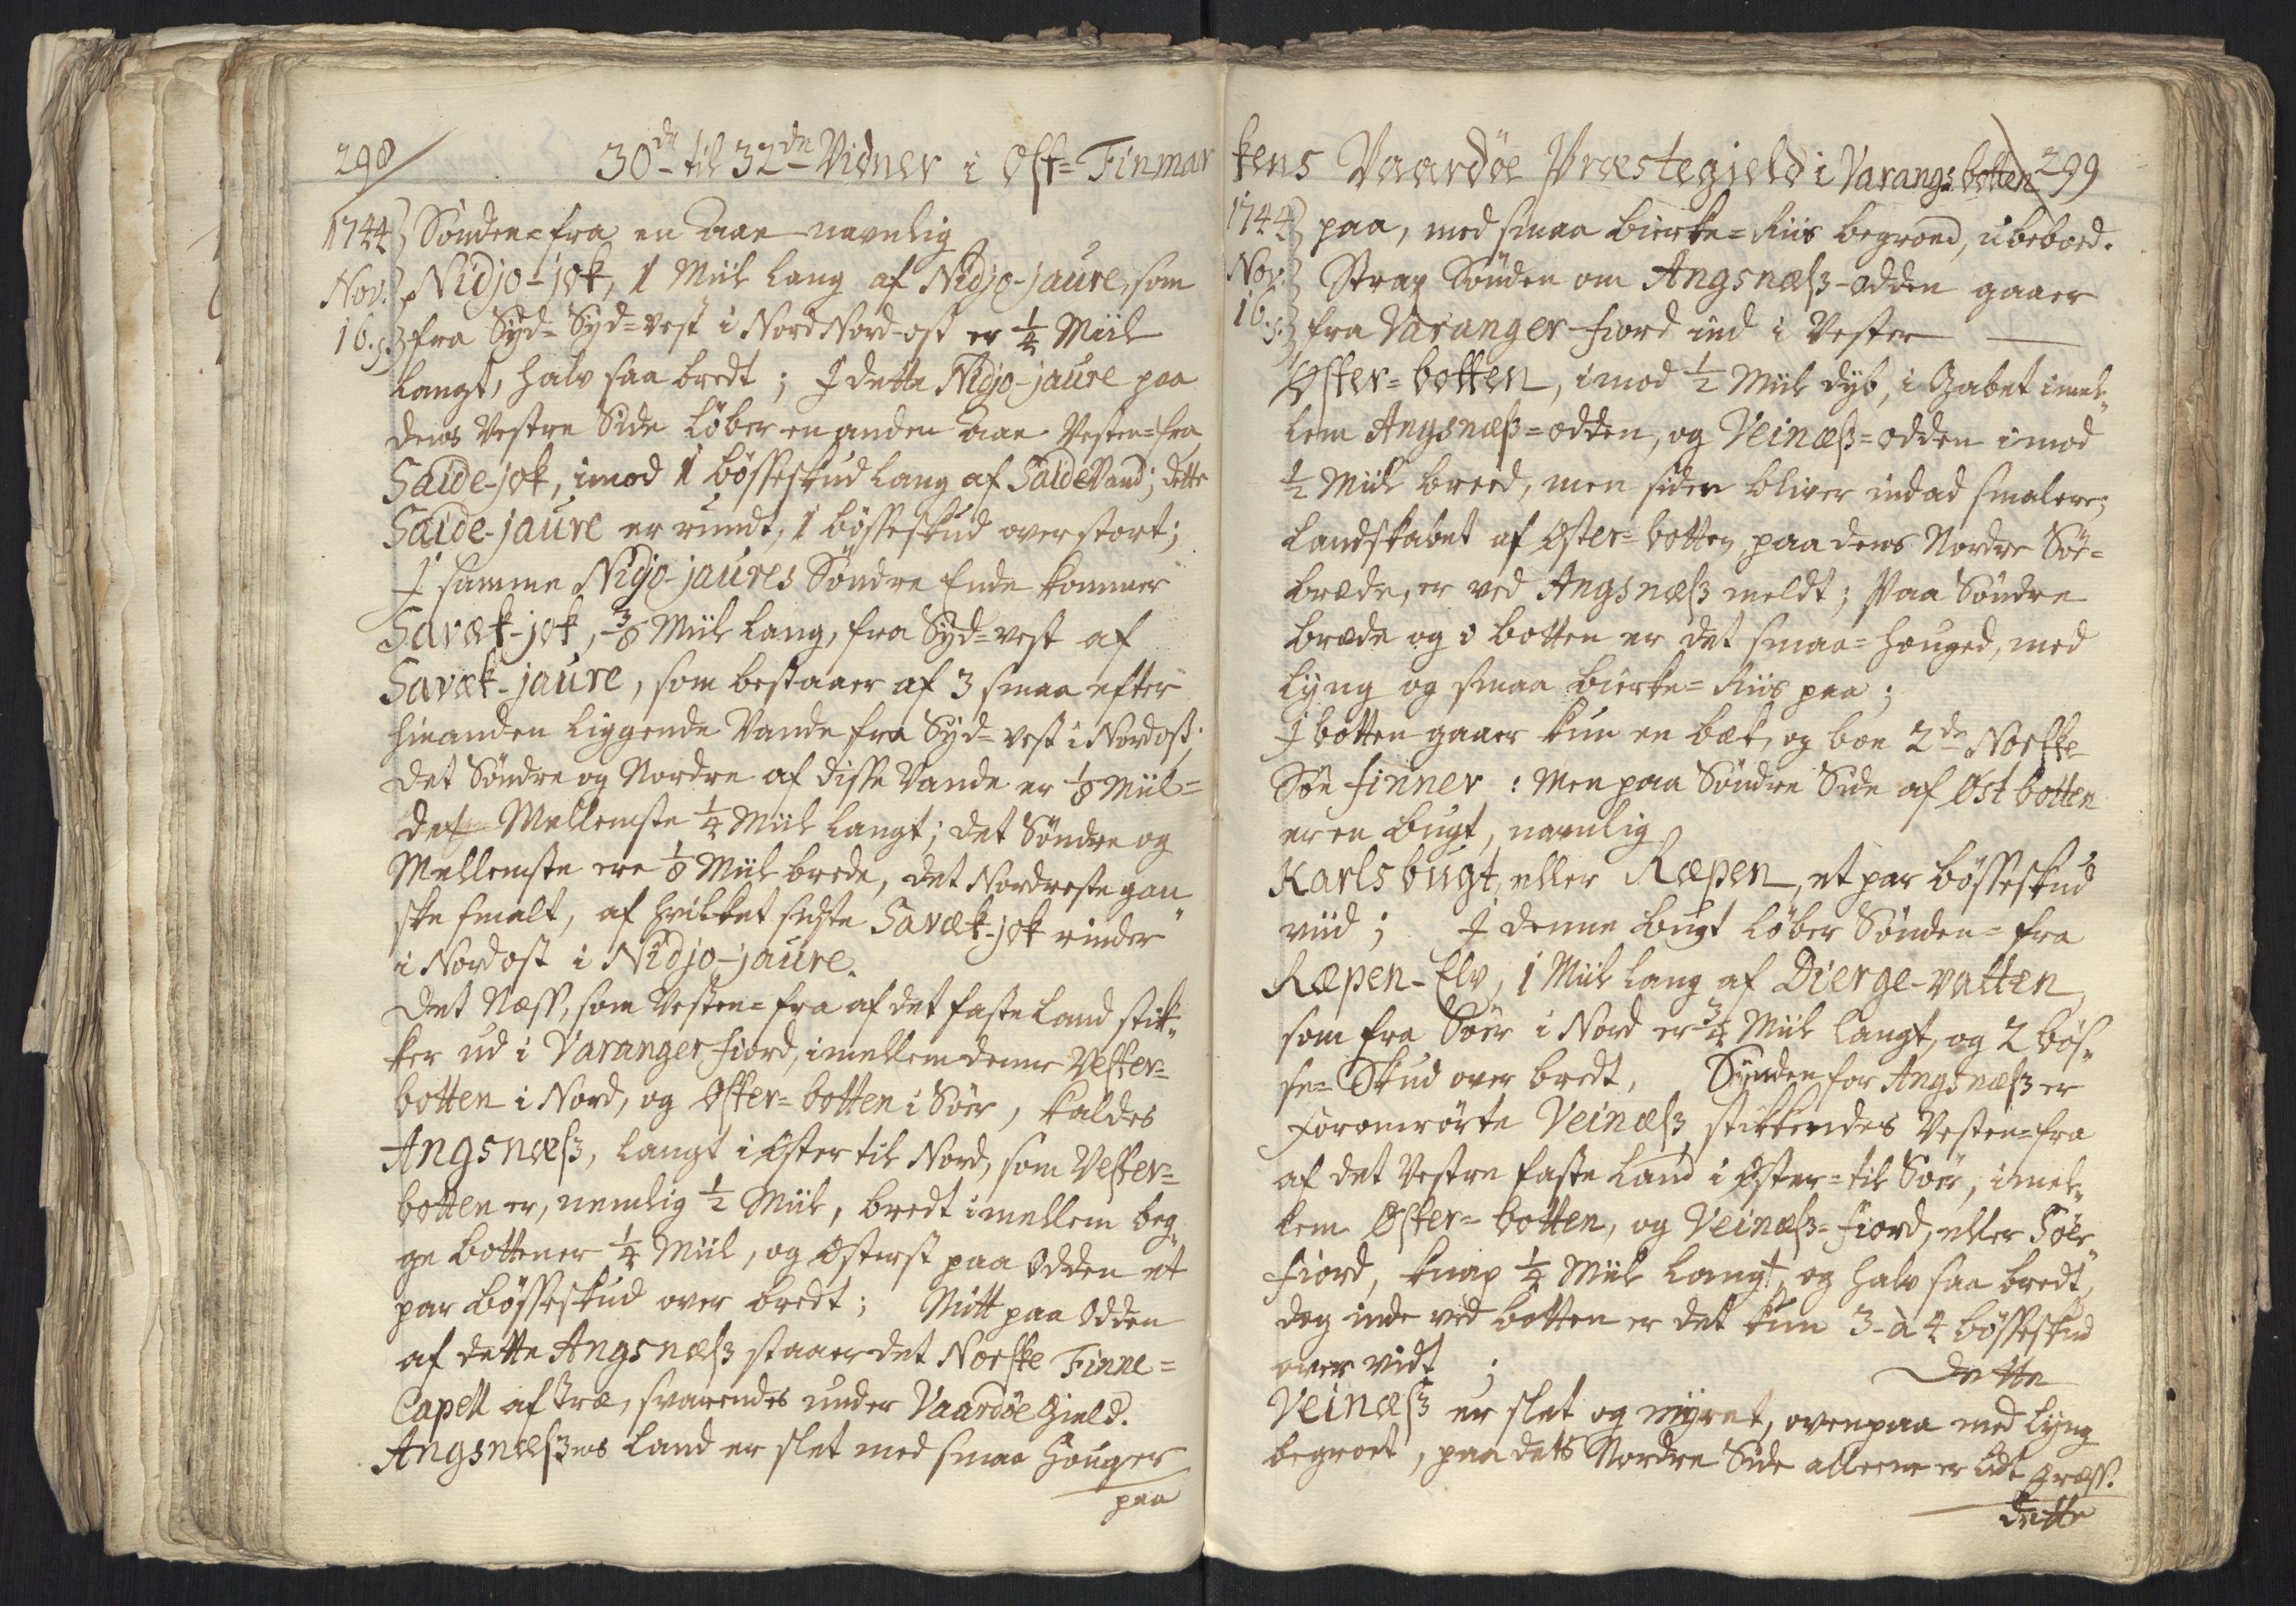 298
30de til 32de Vidner i Ost=Finmar
1744 Sönden=fra en Aae navnlig
Nov. Nidjo-jok, 1 Miil lang af Nidjo-jaure, som
16. s. fra Syd= Syd=vest i Nord Nord-ost er 1/4 Miil
langt, halv saa bredt; I dette Nidjo-jaure paa
dens Vestre Side löber en anden Aae Vesten=fra
Saide-jok, imod 1 bösseskud lang af Saide Vand; dette
Saide-jaure er rundt, 1 bösseskud over stort;
I samme Nidjo-jaures Söndre Ende kommer
Savæk-jok, 3/8 Miil lang, fra Syd=vest af
Savæk-jaure, som bestaaer af 3 smaa efter
hinanden liggende Vande fra Syd=vest i Nordost;
Det Söndre og Nordre af disse Vande er 1/8 Miil=
det Mellemste 1/4 Miil langt; det Söndre og
Mellemste ere 1/8 Miil brede, det Nordreste gan„
ske smalt, af hvilket sidste Savæk-jok rinder
i Nordost i Nidjo-jaure.
Det Næss, som Vesten=fra af det faste Land stik„
ker ud i Varanger fiord, imellem denne Vester=
botten i Nord, og Oster=botten i Söer, kaldes
Angsnæss, langt i Oster til Nord, som Vester=
botten er, nemlig 1/2 Miil, bredt imellem beg„
ge bottener 1/4 Miil, og Osterst paa Odden et
par bösseskud over bredt; Mitt paa Odden
af dette Angsnæss staaer det Norske Finne=
Capell af træ, svarendes under Vaardöe Gield.
Angsnæssens Land er slet med smaa Houger
paa
kens Vaardöe Præstegield i Varangs botten 299
1744 paa, med smaa bierke=Riis begroed, ubeboed.
Nov. Strax Sönden om Angsnæss-Odden gaaer
16. s. fra Varanger-fiord ind i Vester
Oster=botten, imod 1/2 Miil dyb, i Gabet imel„
lem Angsnæss=Odden, og Veinæss=Odden imod
1/2 Miil breed, men siden bliver indad smalere;
Landskabet af Oster=botten paa dens Nordre Söe=
bredde, er ved Angsnæss meldt; Paa Söndre
bredde og i botten er det smaa=houged, med
Lyng og smaa bierke=Riis paa;
I botten gaaer kun en bæk, og boe 2de Norske
Söe finner: Men paa Söndre Side af Ost botten
er en bugt, navnlig
Karlsbugt, eller Ræpen, et par bösseskud
viid; I denne bugt löber Sönden=fra
Ræpen-Elv, 1 Miil lang af Dierge-vatten
som fra Söer i Nord er 3/4 Miil langt, og 2 bös„
se=Skud over bredt. Synden for Angsnæss er
foromrörte Veinæss, stikkendes Vesten=fra
af det Vestre faste Land i Oster=til Söer, imel„
lem Oster=botten, og Veinæss=fiord, eller Söer„
fiord, knap 1/4 Miil langt, og halv saa bredt,
dog inde ved botten er det kun 3-à 4 bösseskud
over vidt; Dette
Veinæss er slet og myret, ovenpaa med Lyng
begroet, paa dets Nordre Side alleene er lidt Græss.
Dette